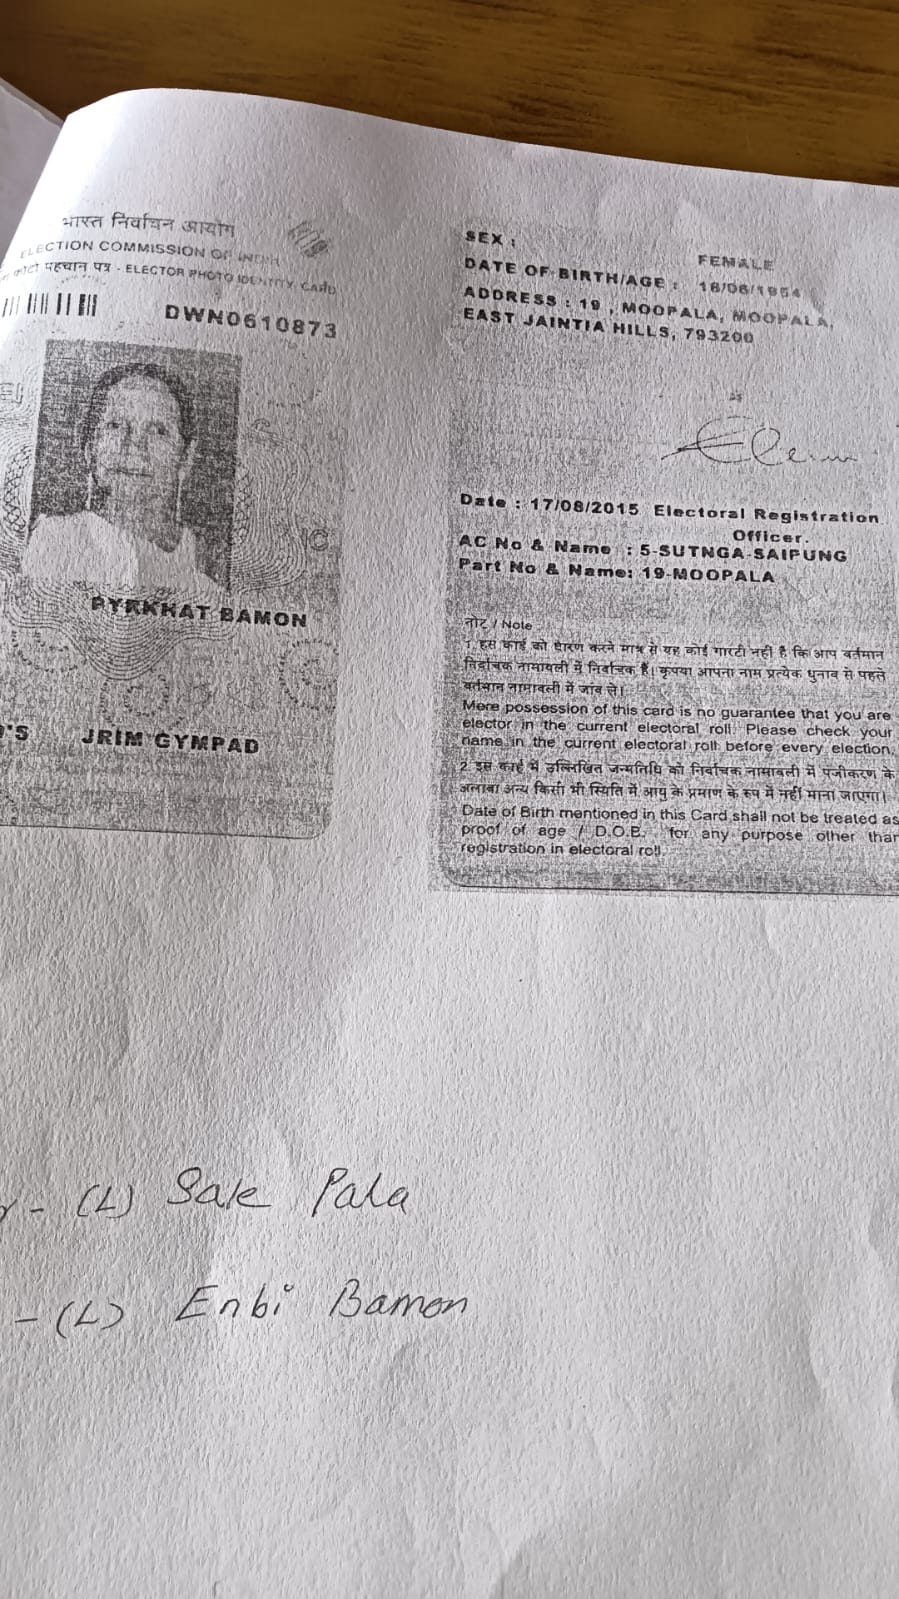 भारत निर्वाचन आयोग
ELECTION COMMISSION OF INDIA
फोटो पहचान पत्र - ELECTOR PHOTO IDENTITY CARD
DWN0610873
PYRKHAT BAMON
'S JRIM GYMPAD
SEX : FEMALE
DATE OF BIRTH/AGE : 16/06/1954
ADDRESS : 19 , MOOPALA, MOOPALA,
EAST JAINTIA HILLS, 793200
Date : 17/08/2015 Electoral Registration
Officer.
AC No & Name : 5-SUTNGA-SAIPUNG
Part No & Name: 19-MOOPALA
नोट / Note
1. इस कार्ड को धारण करने मात्र से यह कोई गारंटी नहीं है कि आप वर्तमान
निर्वाचक नामावली में निर्वाचक हैं। कृपया आपना नाम प्रत्येक चुनाव से पहले
वर्तमान नामावली में जांच ले।
Mere possession of this card is no guarantee that you are
elector in the current electoral roll. Please check your
name in the current electoral roll before every election.
2 इस कार्ड में उल्लिखित जन्मतिथि को निर्वाचक नामावली में पंजीकरण के
अलावा अन्य किसी भी स्थिति में आयु के प्रमाण के रुप में नहीं माना जाएगा।
Date of Birth mentioned in this Card shall not be treated as
proof of age / D.O.B. for any purpose other than
registration in electoral roll.
- (L) Sak Pala
- (L) Enbi Bamon